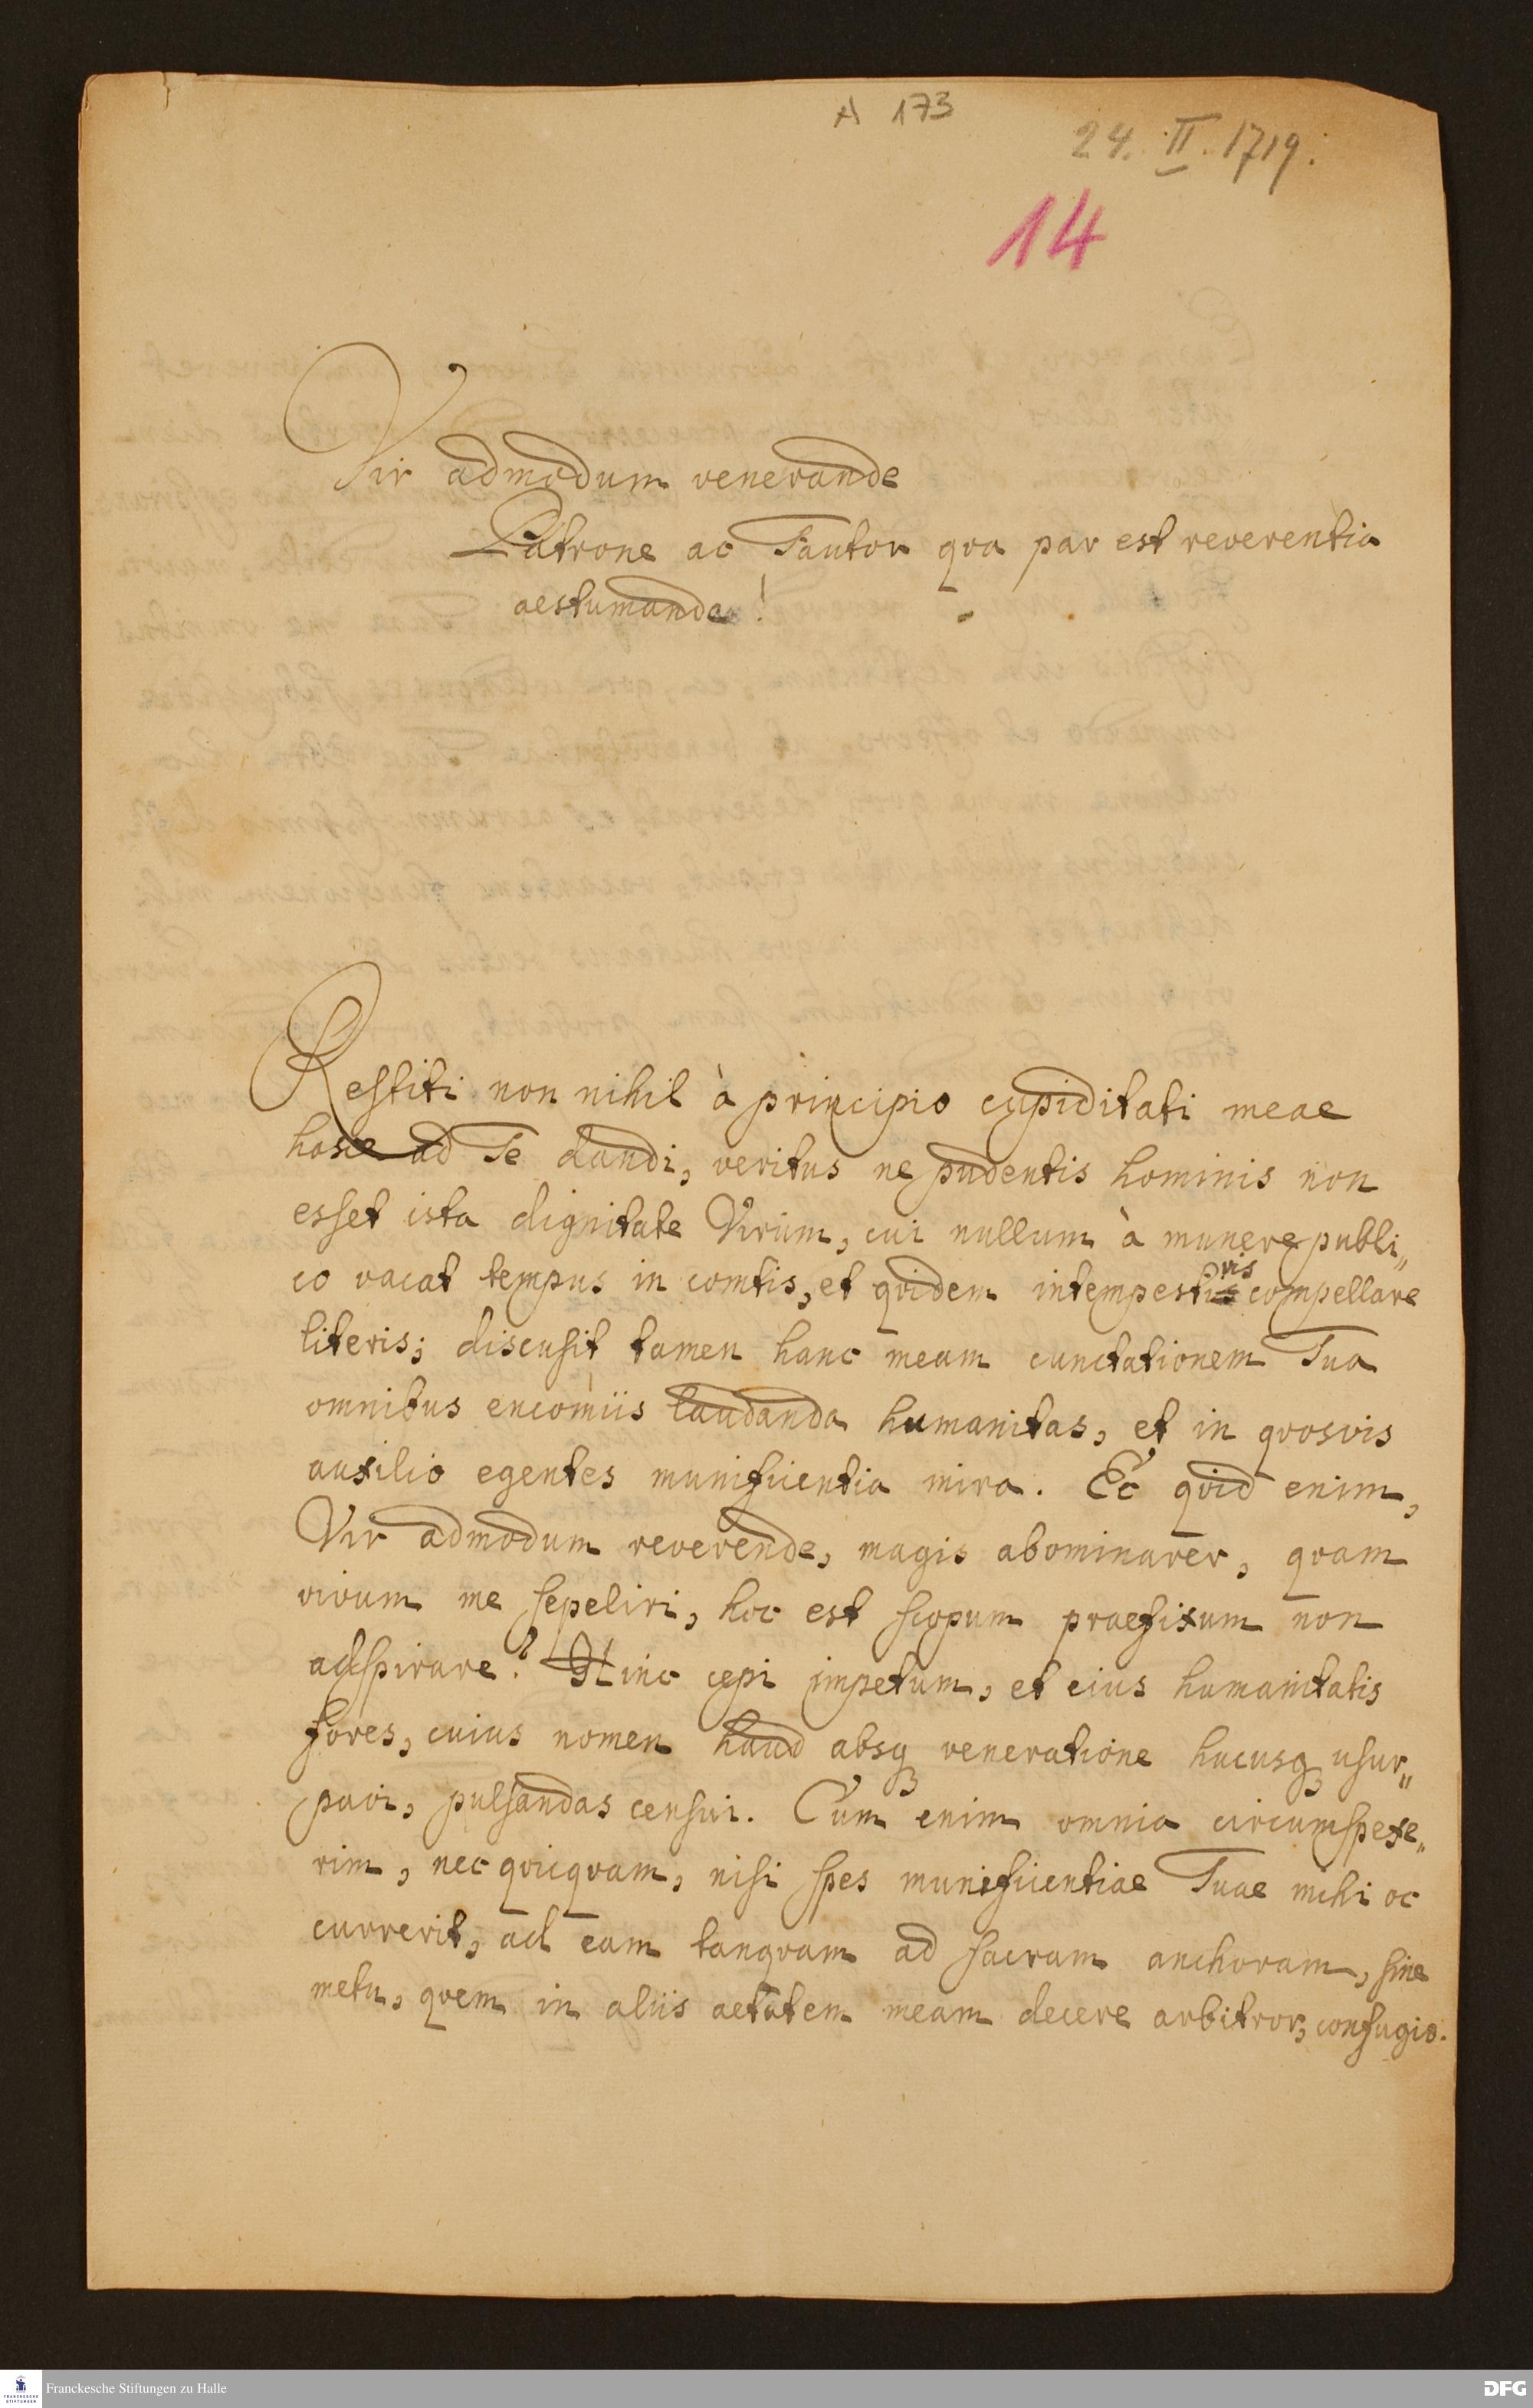 A 173
24. II. 1719.
14
Vir admodum venerande
Patrone ac Fautor qva par est reverentia
aestumande!
Restiti non nihil à principio cupiditati meae
hasce ad Te dandi, veritus ne pudentis hominis non
esset ista dignitate Virum, cui nullum à munere publi„
co vacat tempus in comtis, et qvidem intempestivis compellare
literis; discusit tamen hanc meam cunctationem Tua
omnibus encomiis laudanda humanitas, et in qvosvis
auxilio egentes munificentia mira. Ec qvid enim,
Vir admodum reverende, magis abominarer, qvam
vivum me sepeliri, hoc est scopum praefixum non
adspirare? Hinc cepi impetum, et eius humanitatis
fores, cuius nomen haud absq veneratione hucusq usur„
pavi, pulsandas censui. Cum enim omnia circumspexe„
rim, nec qvicqvam, nisi spes munificentiae Tuae mihi oc
currerit, ad eam tanqvam ad sacram anchoram, sine
metu, qvem in aliis aetatem meam decere arbitror, confugio.
Franckesche Stiftungen zu Halle
DFG